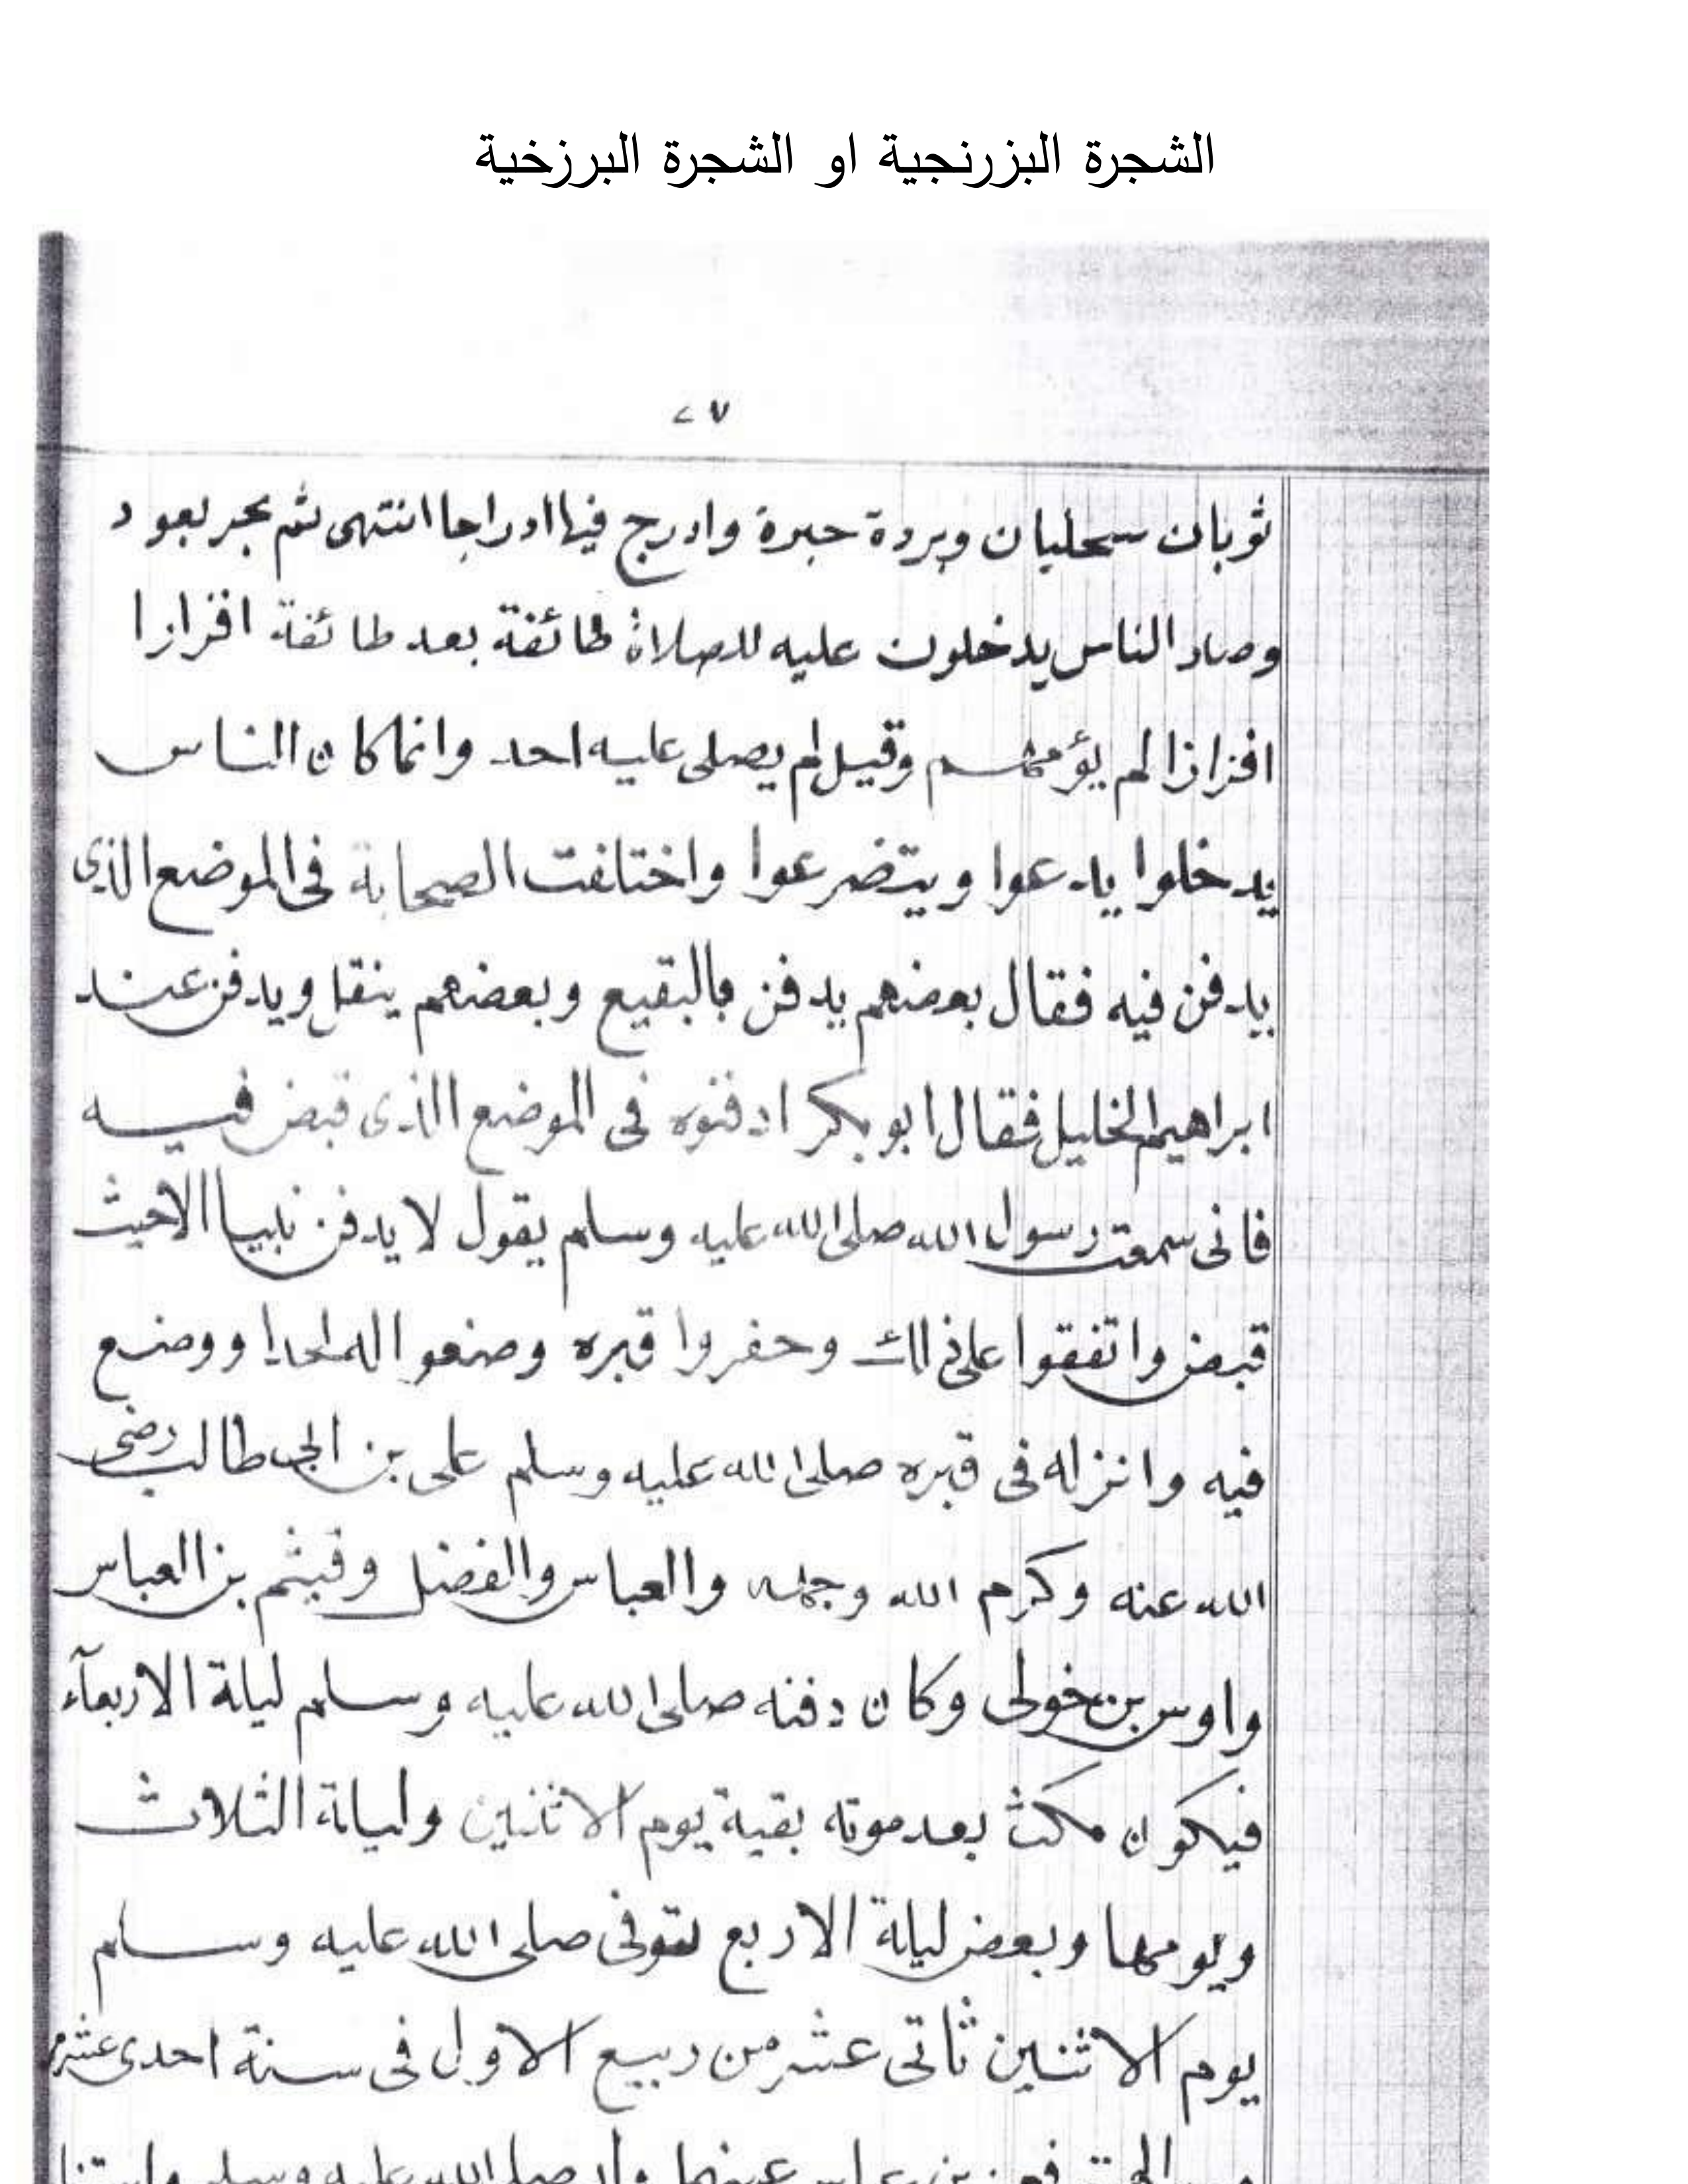 الشجرة البزرنجية او الشجرة البرزخية
٢٧
ثوبان سحليان وبردة حبرة وادرج فيها ادراجا انتهى ثم بجر بعود
وصار الناس يدخلون عليه للصلاة طائفة بعد طائفة افرازا
افرازا لم يؤمهم وقيل لم يصلى عليه احد وانما كان الناس
يدخلوا يدعوا ويتضرعوا واختلفت الصحابة فى الموضع الذى
يدفن فيه فقال بعضهم يدفن بالبقيع وبعضهم ينقل ويدفن عند
ابراهيم الخليل فقال ابو بكر ادفنوه فى الموضع الذى قبض فيه
فانى سمعت رسول الله صلى الله عليه وسلم يقول لا يدفن نبيا الا حيث
قبض واتفقوا على ذلك وحفروا قبره وصنعوا له لحدا ووضع
فيه وانزله فى قبره صلى الله عليه وسلم على بن ابى طالب رضى
الله عنه وكرم الله وجهه والعباس والفضل وقيثم بن العباس
واوس بن خولى وكان دفنه صلى الله عليه وسلم ليلة الاربعآء
فيكون مكث بعد موته بقية يوم الاثنين وليلة الثلاث
ويومها وبعض ليلة الاربع توفى صلى الله عليه وسلم
يوم الاثنين ثانى عشر من ربيع الاول فى سنة احدى عشر
صلى الله عليه وسلم